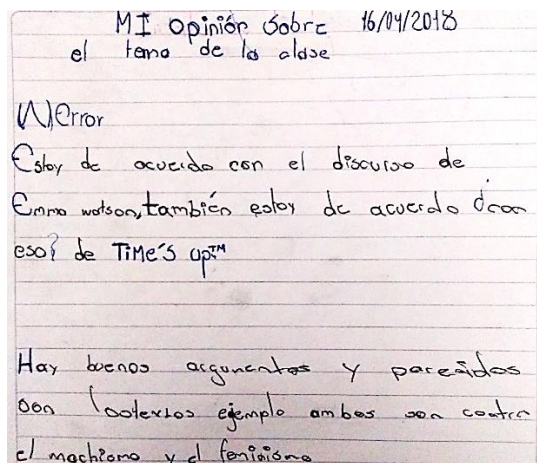 MI opinión sobre 16/04/2018
el tema de la clase
Error
Estoy de acuerdo con el discurso de
Emma watson, también estoy de acuerdo con
eso de TiMe's up™
Hay buenos argumentos y parecidos
con textos ejemplo ambos son contra
el machismo y el feminismo